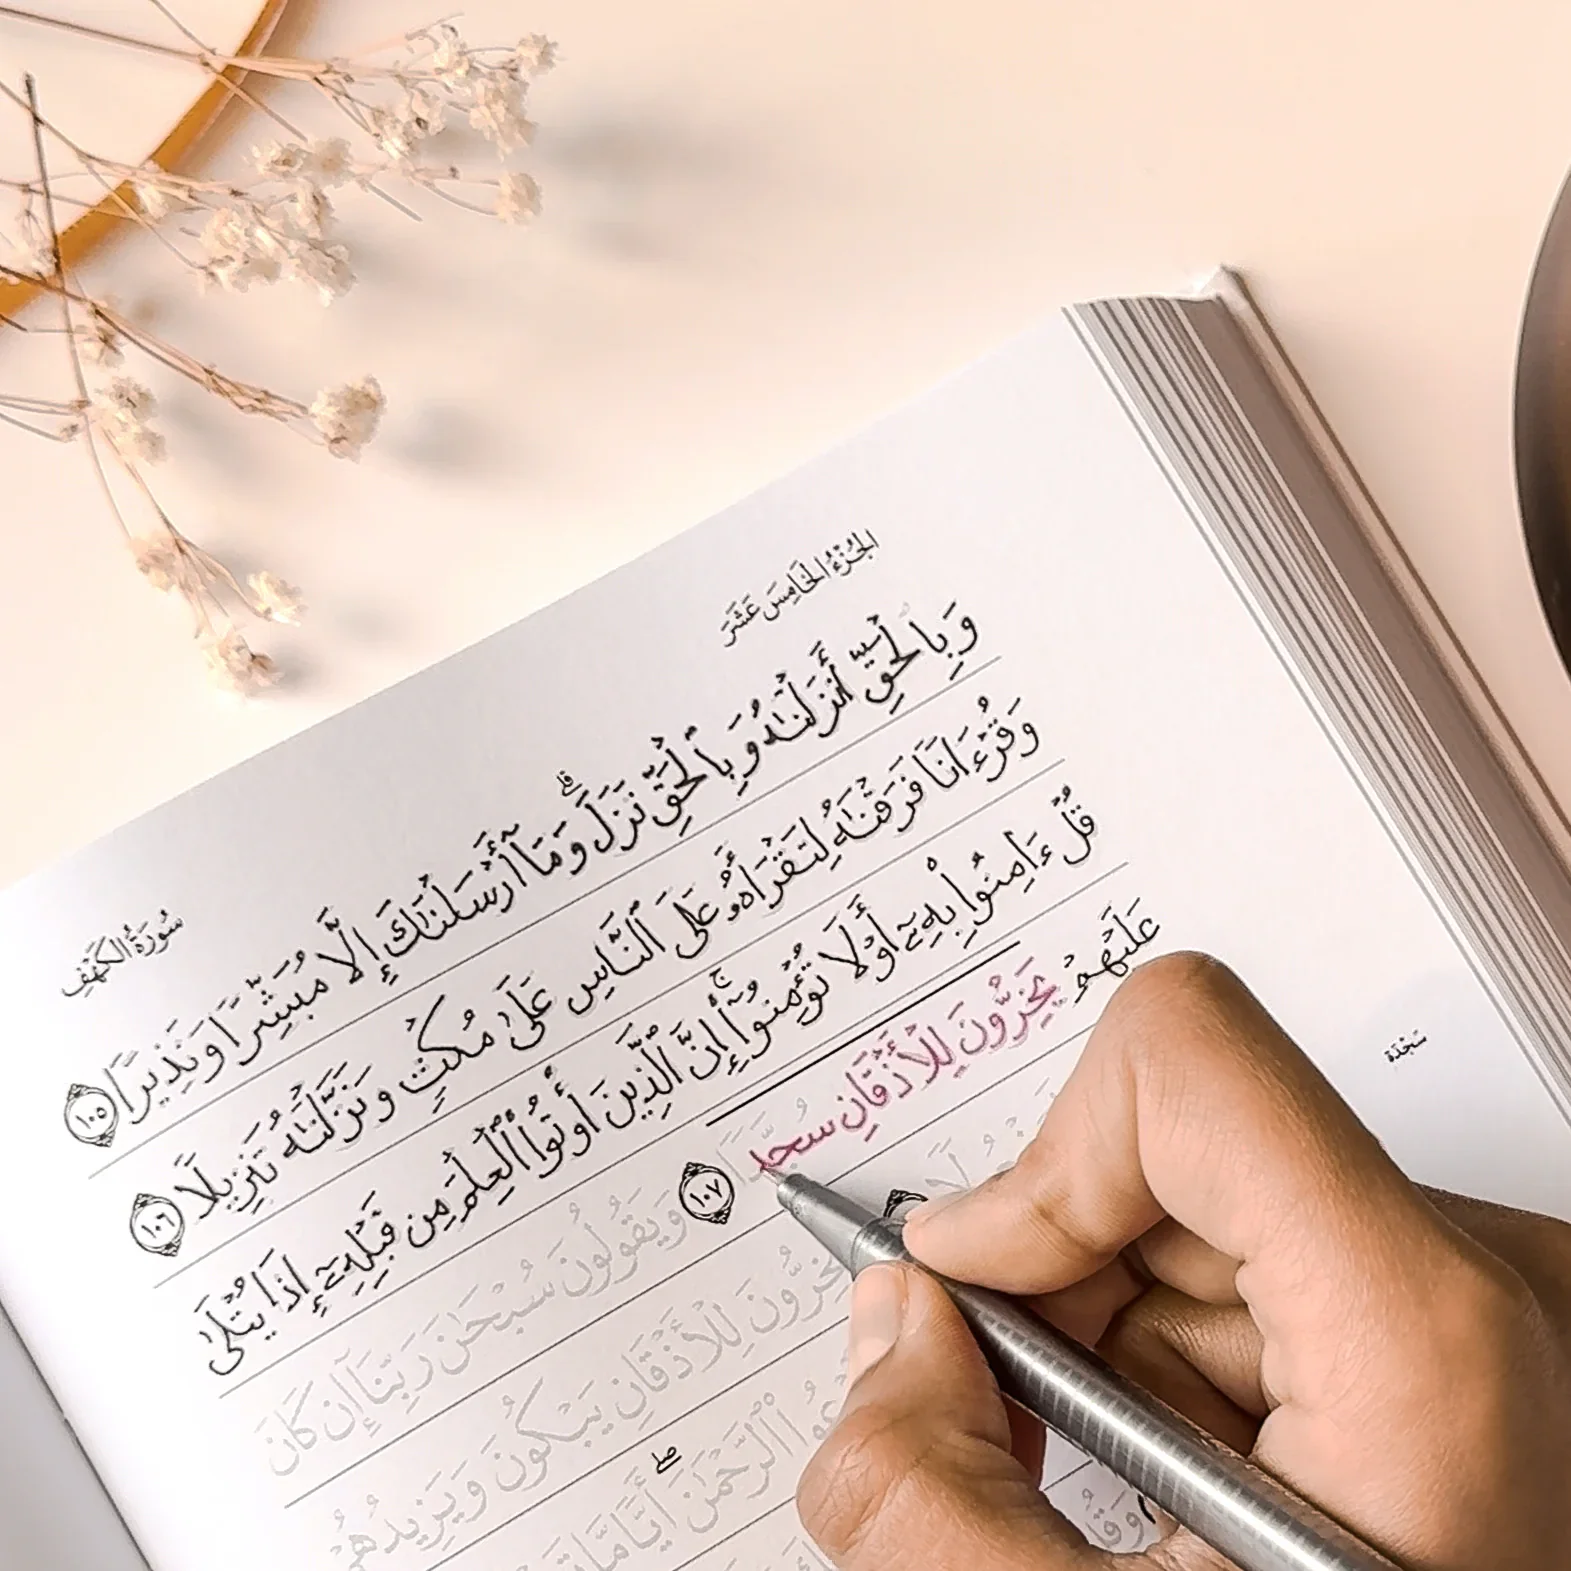 الجُزْءُ الخَامِسَ عَشَرَ
سُورَةُ الكَهْفِ
وَبِٱلْحَقِّ أَنزَلْنَٰهُ وَبِٱلْحَقِّ نَزَلَ ۗ وَمَآ أَرْسَلْنَٰكَ إِلَّا مُبَشِّرًا وَنَذِيرًا ١٠٥
وَقُرْءَانًا فَرَقْنَٰهُ لِتَقْرَأَهُۥ عَلَى ٱلنَّاسِ عَلَىٰ مُكْثٍ وَنَزَّلْنَٰهُ تَنزِيلًا ١٠٦
قُلْ ءَامِنُوا۟ بِهِۦٓ أَوْ لَا تُؤْمِنُوٓا۟ ۚ إِنَّ ٱلَّذِينَ أُوتُوا۟ ٱلْعِلْمَ مِن قَبْلِهِۦٓ إِذَا يُتْلَىٰ
عَلَيْهِمْ يَخِرُّونَ لِلْأَذْقَانِ سُجَّدًا ١٠٧ وَيَقُولُونَ سُبْحَٰنَ رَبِّنَآ إِن كَانَ
سَجْدَة
يَخِرُّونَ لِلْأَذْقَانِ يَبْكُونَ وَيَزِيدُهُمْ
ٱلرَّحْمَٰنَ ۖ أَيًّا مَّا